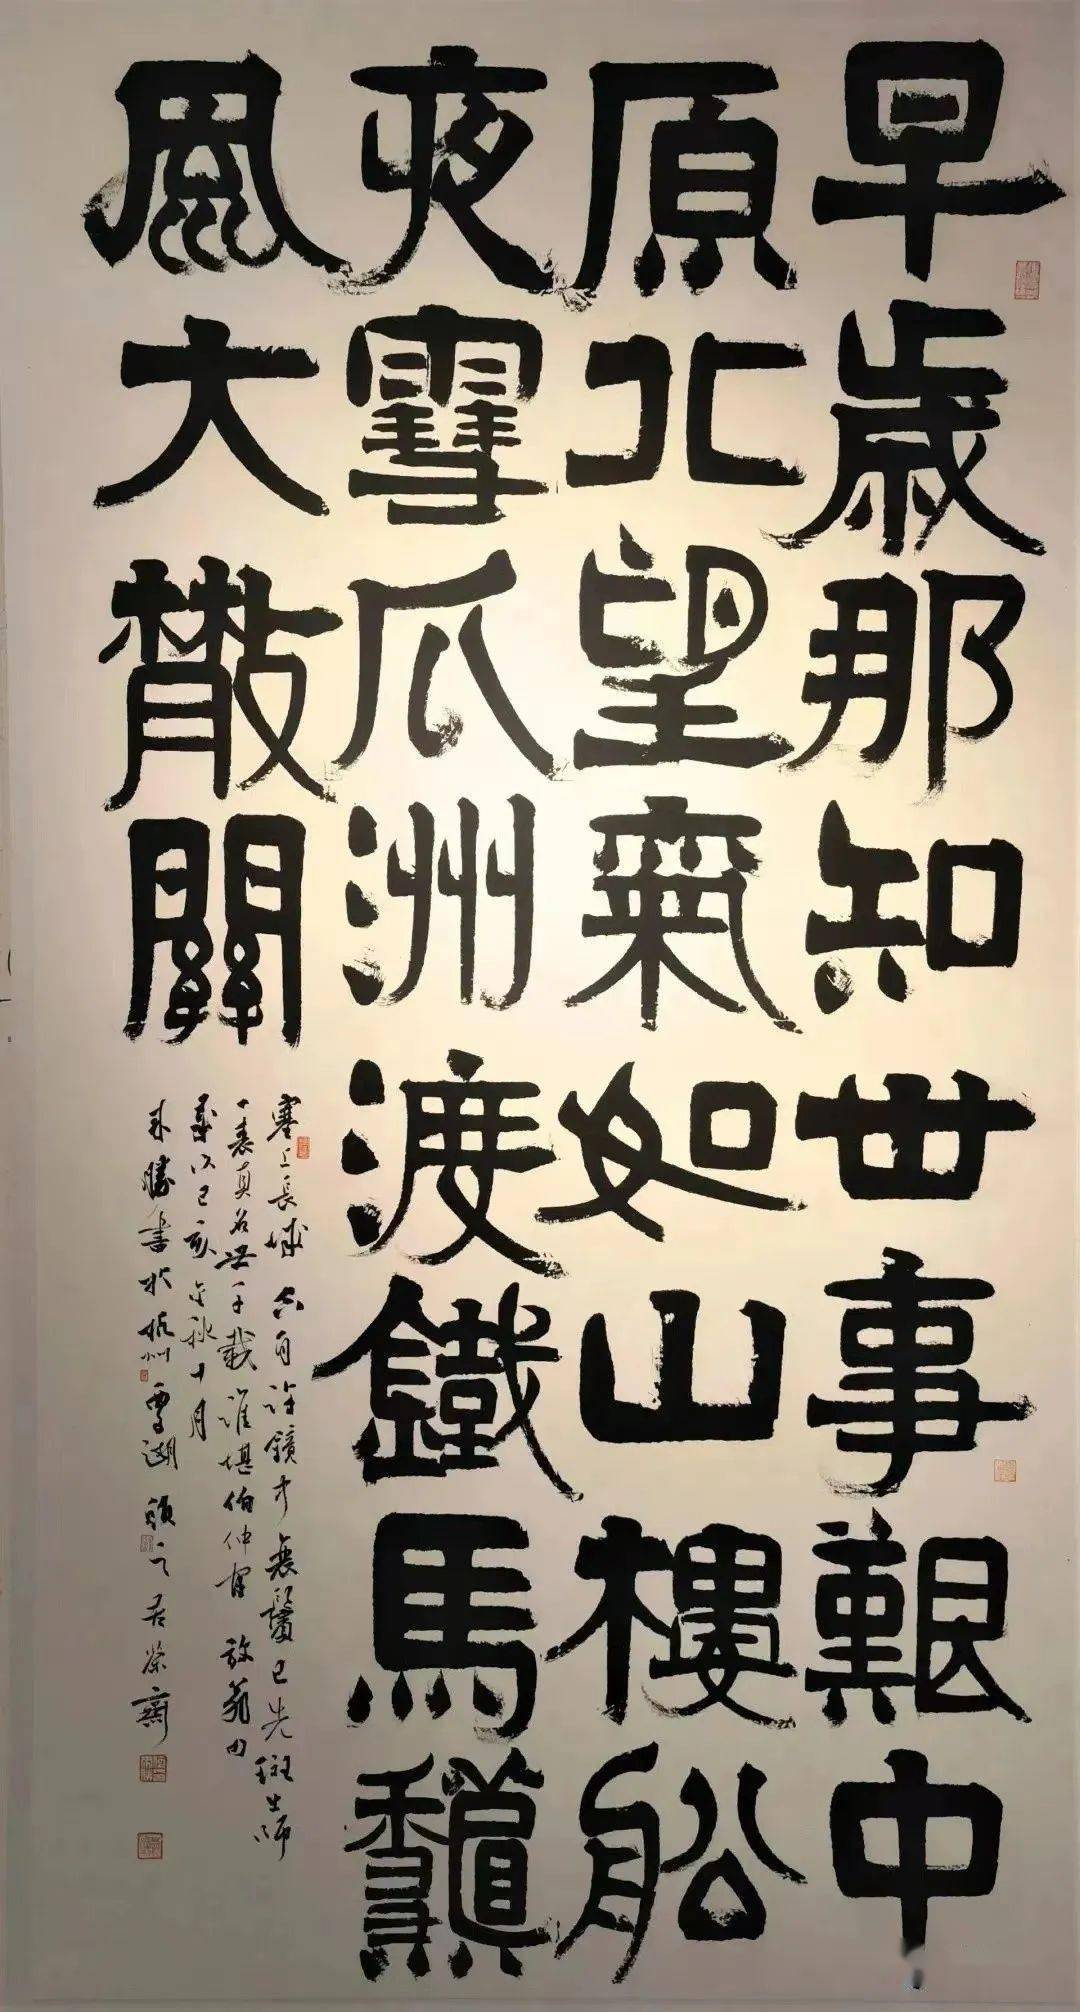 早歲那知世事艱中
原北望氣如山樓船
夜雪瓜洲渡鐵馬秋
風大散關
塞上長城空自許鏡中衰鬢已先斑出師
一表真名世千載誰堪伯仲間 放翁句
歲次己亥年秋十月
勝書於杭州西湖 之居榮齋